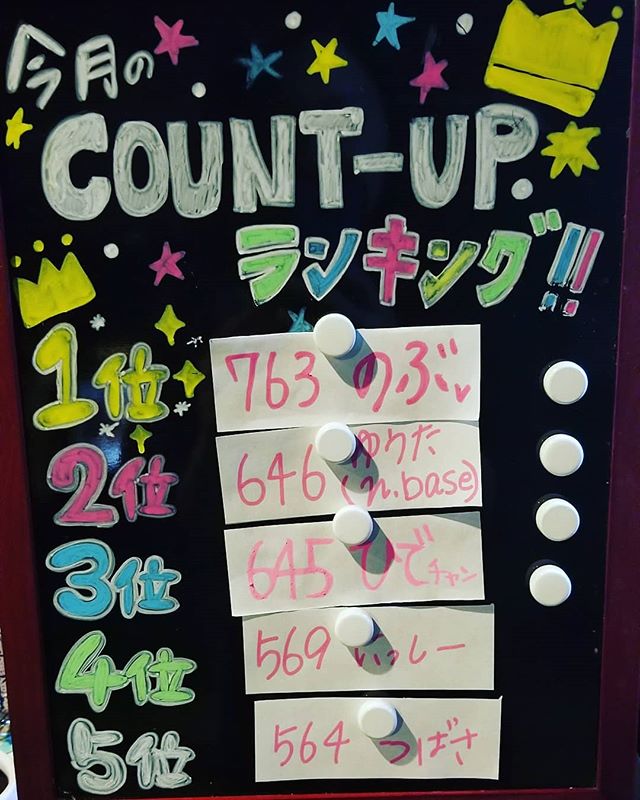 今月の
COUNT-UP.
ランキング!!
1位 763 のぶ
2位 646 ゆりた
(n.base)
3位 645 ひでチャン
4位 569 いっしー
5位 564 つばさ